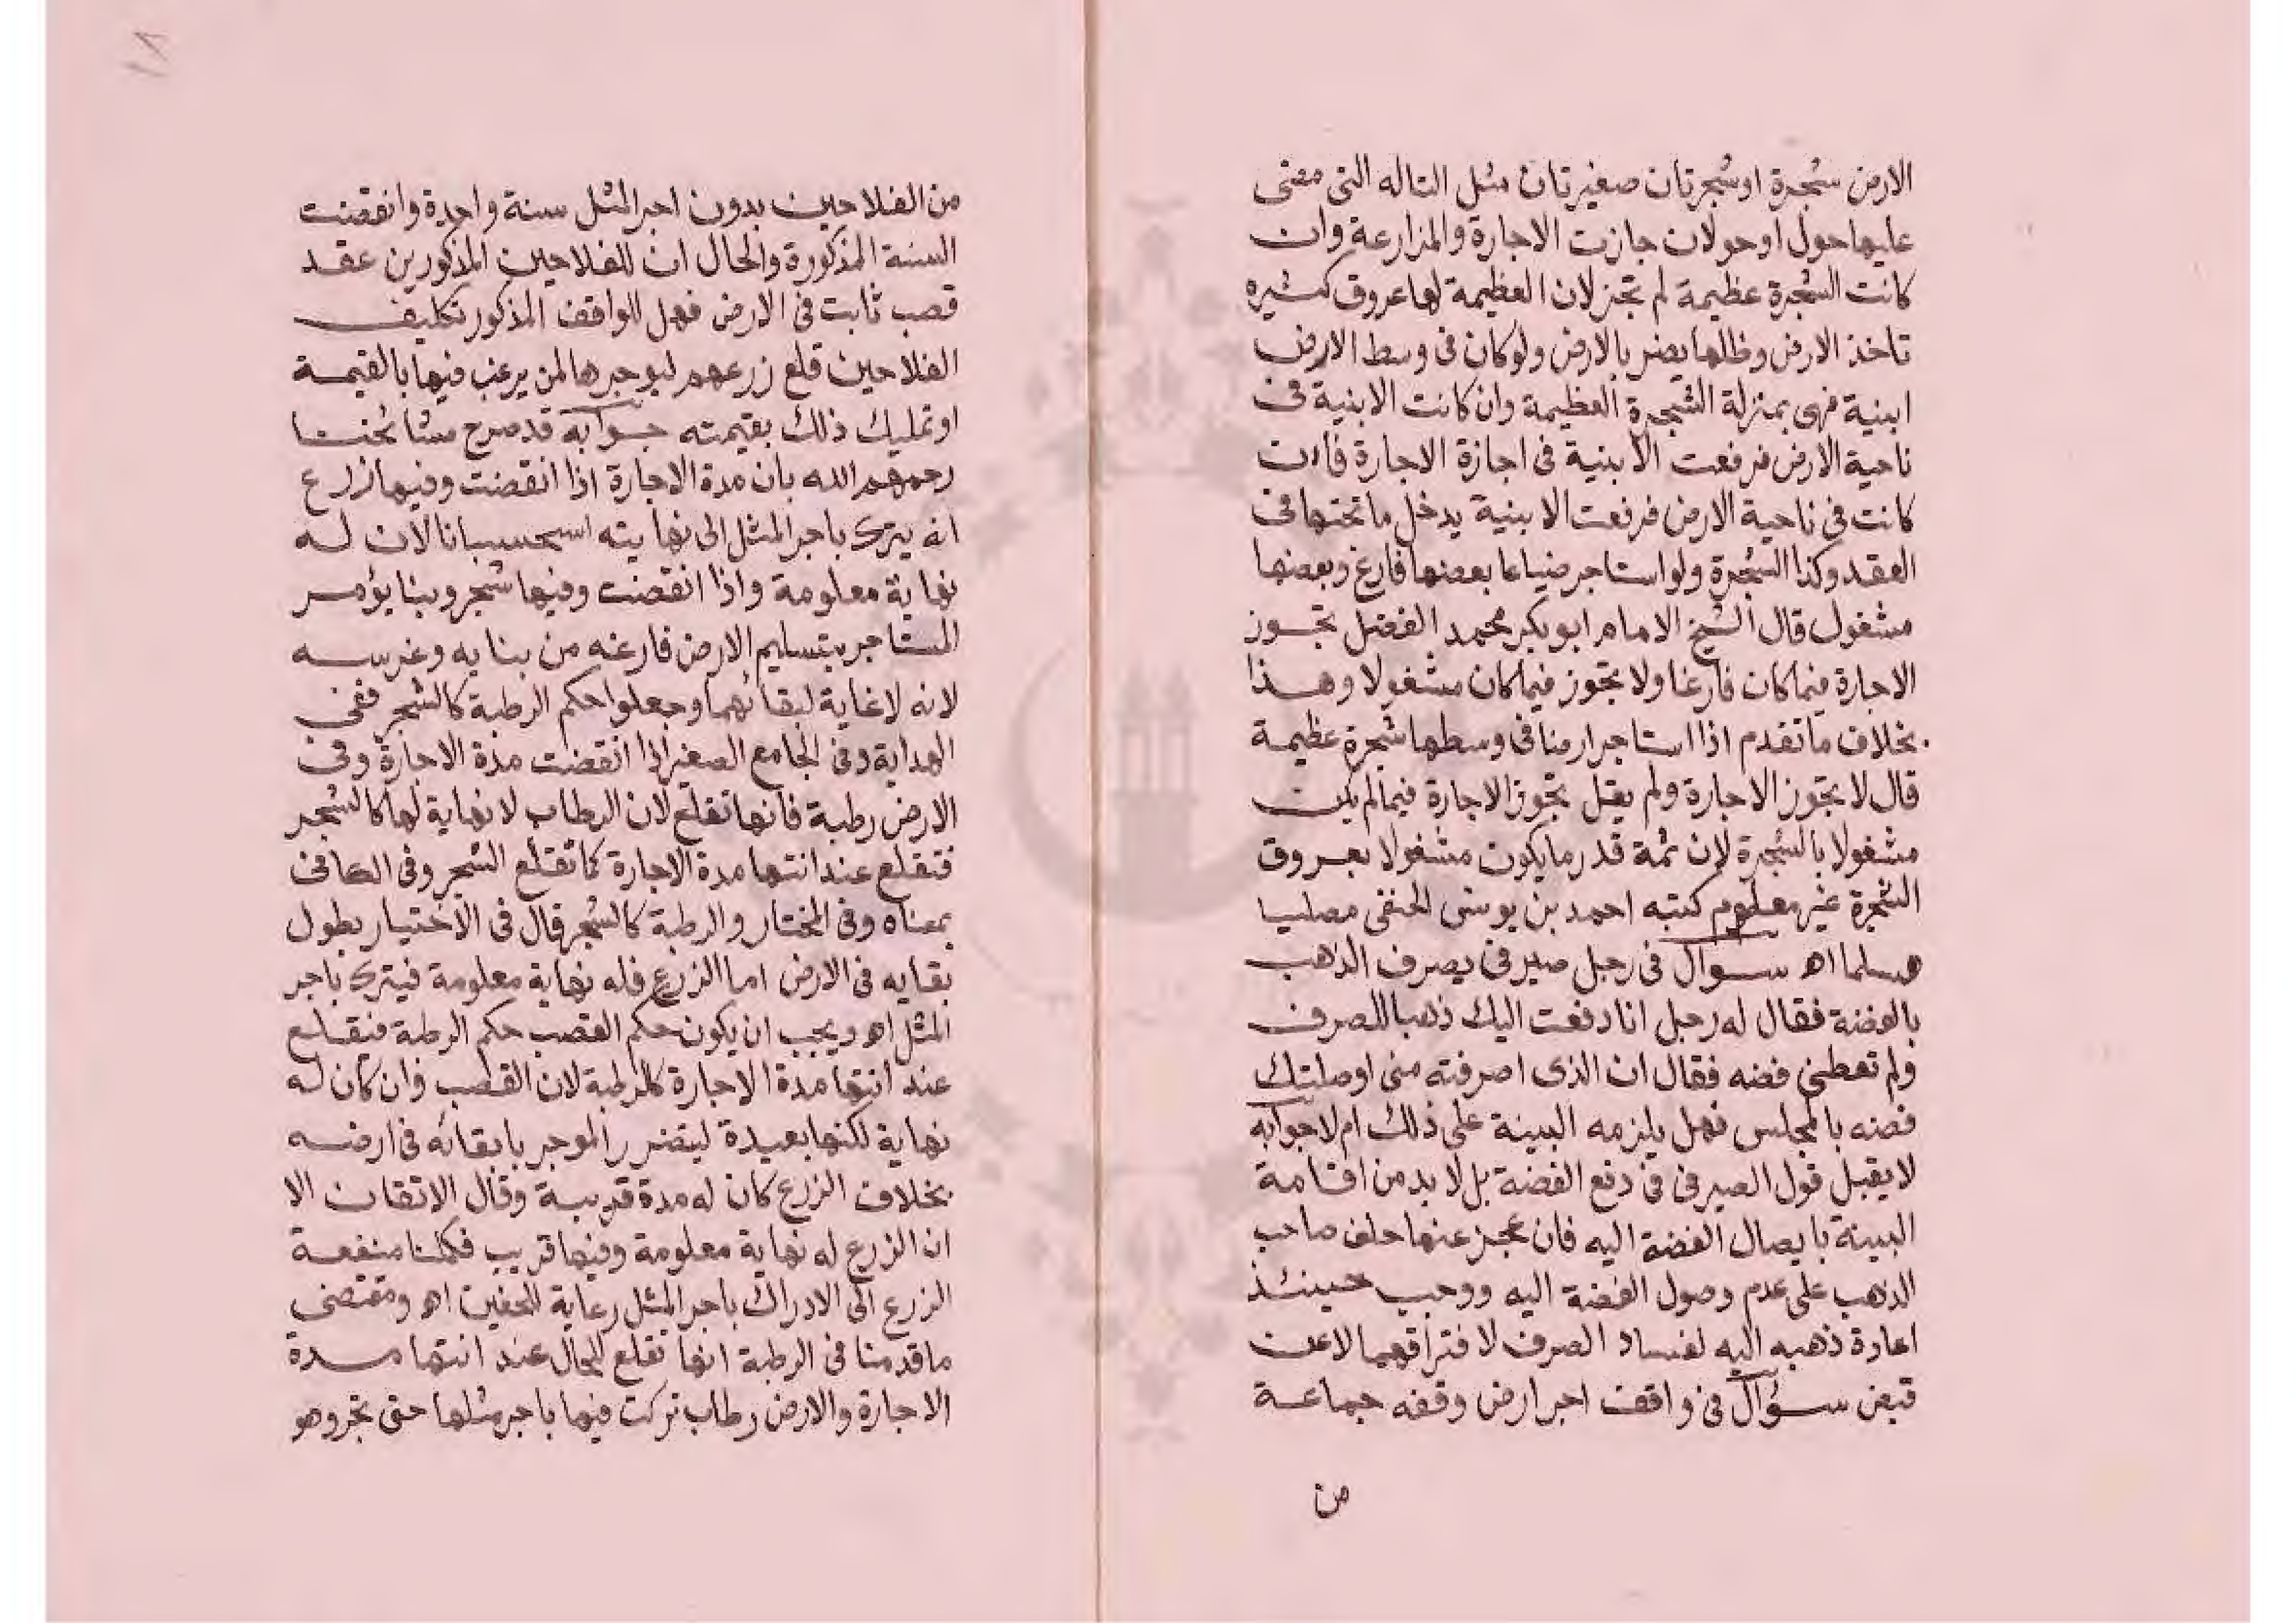 الارض شجرة او شجرتان صغيرتان مثل التاله التى مضى
عليها حول او حولان جازت الاجارة والمزارعة وان
كانت الشجرة عظيمة لم تجز لان العظيمة لها عروق كثيره
تاخذ الارض وظلها يضر بالارض ولو كان فى وسط الارض
ابنية فهى بمنزلة الشجرة العظيمة وان كانت الابنية فى
ناحية الارض فرفعت الابنية فى اجازة الاجارة فان
كانت فى ناحية الارض فرفعت الابنية يدخل ما تحتها فى
العقد وكذا الشجرة ولو استاجر ضياعا بعضها فارغ وبعضها
مشغول قال الشيخ الامام ابو بكر محمد الفضل تجوز
الاجارة فيما كان فارغا ولا تجوز فيما كان مشغولا وهذا
بخلاف ما تقدم اذا استاجر ارضا فى وسطها شجرة عظيمة
قال لا تجوز الاجارة ولم يقل تجوز الاجارة فيما لم يكن
مشغولا بالشجرة لان ثمة قدر ما يكون مشغولا بعروق
الشجرة غير معلوم كتبه احمد بن يونس الحنفى مصليا
مسلما اه سوال فى رجل صيرفى يصرف الذهب
بالفضة فقال له رجل انا دفعت اليك ذهبا للصرف
ولم تعطنى فضه فقال ان الذى اصرفته منى اوصلتك
فضه بالمجلس فهل يلزمه البينة على ذلك ام لا جوابه
لا يقبل قول الصيرفى فى دفع الفضة بل لا بد من اقامة
البينة بايصال الفضة اليه فان عجز عنها حلف صاحب
الذهب على عدم وصول الفضة اليه ووجب حينئذ
اعادة ذهبه اليه لفساد الصرف لافتراقهما لا عن
قبض سؤال فى واقف اجر ارض وقفه جماعة
من
١٨
من الفلاحين بدون اجر المثل سنة واحدة وانقضت
السنة المذكورة والحال ان للفلاحين المذكورين عقد
قصب ثابت فى الارض فهل للواقف المذكور تكليف
الفلاحين قلع زرعهم ليوجرها لمن يرغب فيها بالقيمة
او تمليك ذلك بقيمته جوابه قد صرح مشائخنا
رحمهم الله بان مدة الاجارة اذا انقضت وفيها زرع
انه يترك باجر المثل الى نهايته استحسانا لان له
نهاية معلومة واذا انقضت وفيها شجر وبنا يؤمر
المستاجر بتسليم الارض فارغه من بنايه وغرسه
لانه لا غاية لبقائهما وجعلوا حكم الرطبة كالشجر ففى
الهداية وفى الجامع الصغير اذا انقضت مدة الاجارة وفى
الارض رطبة فانها تقلع لان الرطاب لا نهاية لها كالشجر
فتقلع عند انتها مدة الاجارة كما تقلع الشجر وفى الكافى
بمعناه وفى المختار والرطبة كالشجر قال فى الاختيار بطول
بقايه فى الارض اما الزرع فله نهاية معلومة فيترك باجر
المثل اه ويجب ان يكون حكم القصب حكم الرطبة فيقلع
عند انتها مدة الاجارة كالرطبة لان القصب وان كان له
نهاية لكنها بعيدة ليتضرر الموجر بابقائه فى ارضه
بخلاف الزرع كان له مدة قريبة وقال الاتقان الا
ان الزرع له نهاية معلومة وفيها قريب فكلنا منفعة
الزرع الى الادراك باجر المثل رعاية للحقين اه ومقتضى
ما قدمنا فى الرطبة انها تقلع للحال عند انتها مدة
الاجارة والارض رطاب تركت فيها باجر مثلها حتى تجز وهو